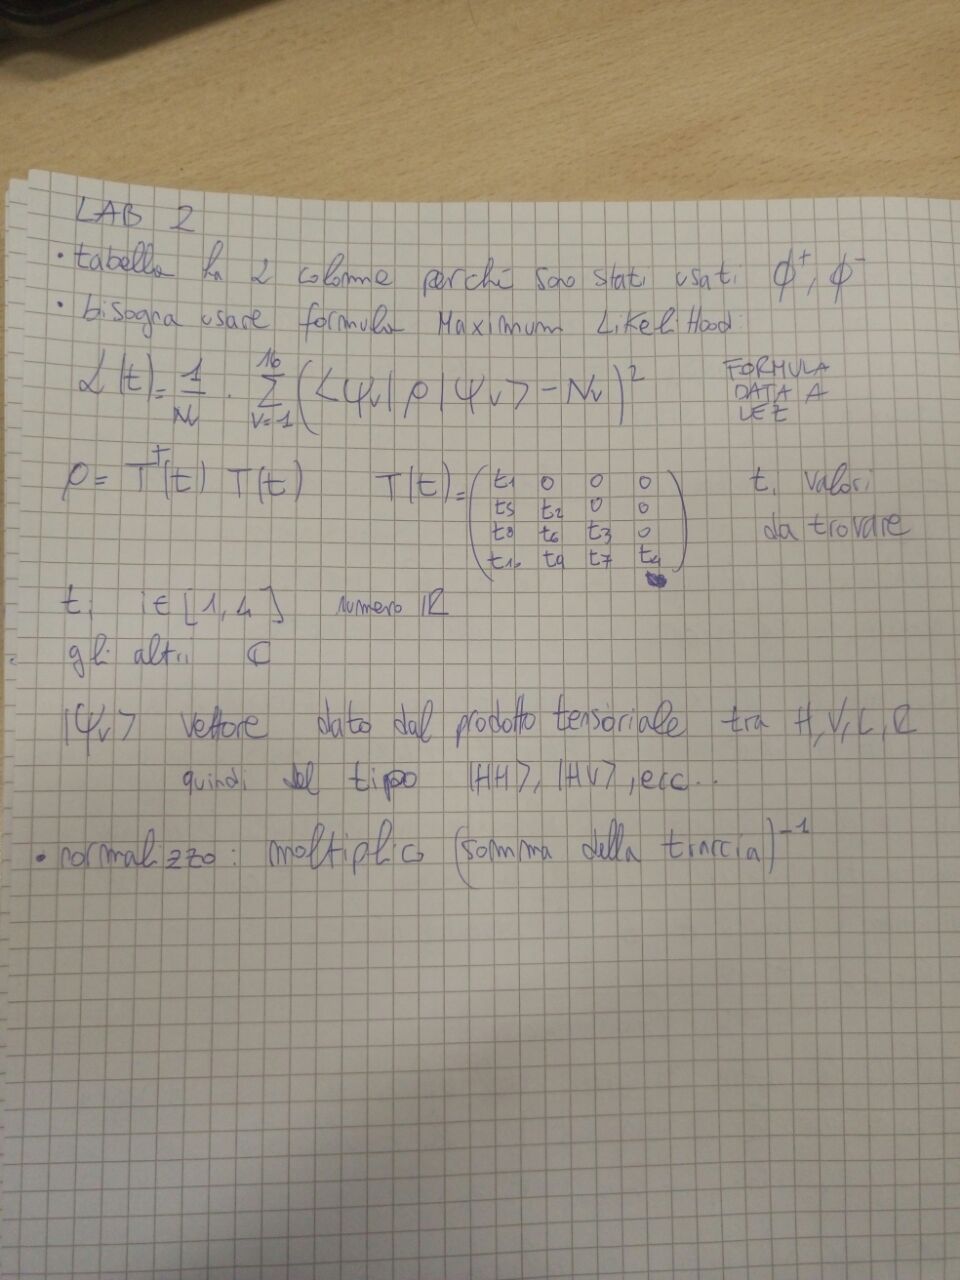 LAB 2
• tabella ha 2 colonne perché sono stati usati ϕ⁺, ϕ⁻
• bisogna usare formula Maximum LikeliHood:
L(t) = 1/Nν · Σ_{ν=1}^{16} (<Ψν|ρ|Ψν> - Nν)² FORMULA
DATA A
LEZ
ρ = T†(t) T(t) T(t) = ( t₁ 0 0 0 ti valori
t₅ t₂ 0 0
t₈ t₆ t₃ 0 da trovare
t₁₀ t₉ t₇ t₄ )
ti i∈[1,4] numero ℝ
gli altri ℂ
|Ψν> vettore dato dal prodotto tensoriale tra H,V,L,R
quindi del tipo |HH>, |HV>, ecc...
• normalizzo: moltiplico (somma della traccia)⁻¹